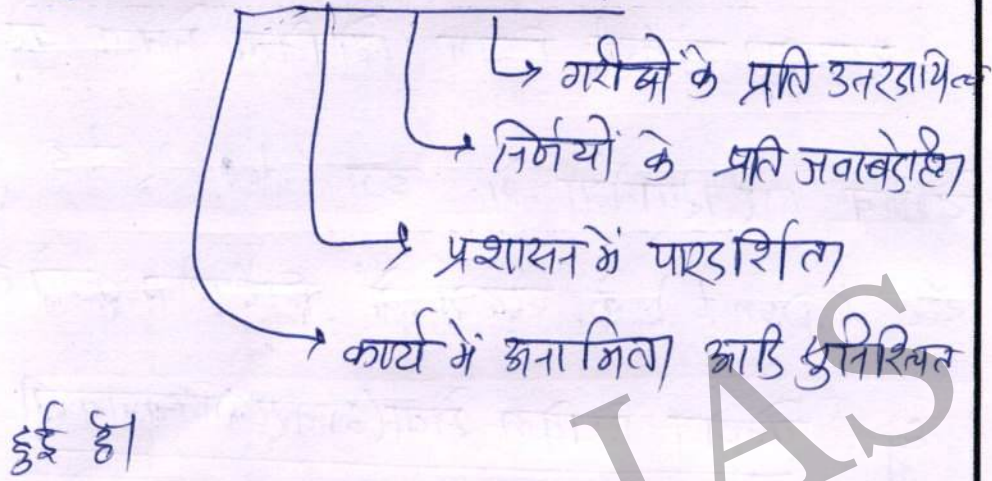 गरीबों के प्रति उतरदायित्व
निर्णयों के प्रति जवाबदेहिता
प्रशासन में पारदर्शिता
कार्य में अनामिता आदि सुनिश्चित
हुई है।
IAS